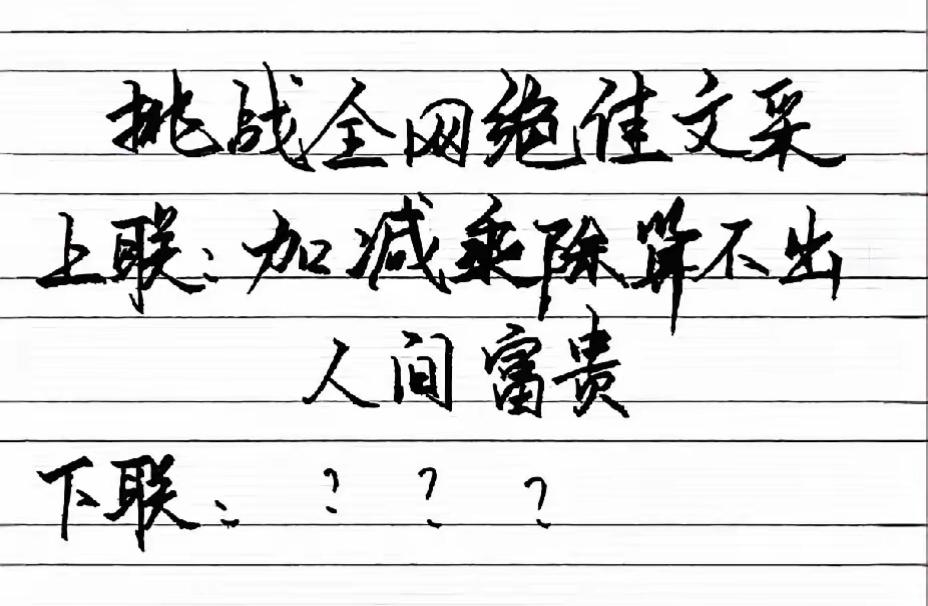 挑战全网绝佳文采
上联:加减乘除算不出
人间富贵
下联:???